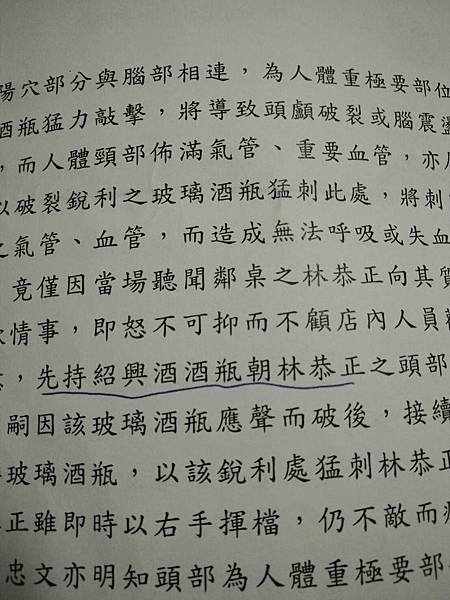 陽穴部分與腦部相連，為人體重極要部位
酒瓶猛力敲擊，將導致頭顱破裂或腦震盪
，而人體頸部佈滿氣管、重要血管，亦
以破裂銳利之玻璃酒瓶猛刺此處，將刺
之氣管、血管，而造成無法呼吸或失血
竟僅因當場聽聞鄰桌之林恭正向其質
情事，即怒不可抑而不顧店內人員
，先持紹興酒酒瓶朝林恭正之頭部
嗣因該玻璃酒瓶應聲而破後，接續
玻璃酒瓶，以該銳利處猛刺林恭正
正雖即時以右手揮檔，仍不敵而
忠文亦明知頭部為人體重極要部